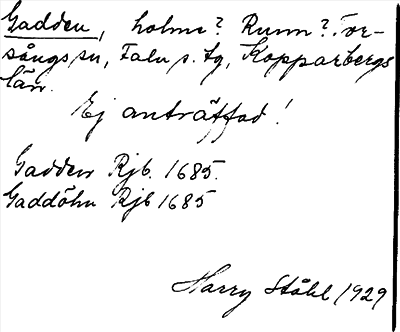 Gadden, holme? Runn? Tor-
sångs sn, Falu s. tg, Kopparbergs
län.
Ej anträffad!
Gadden Rjb. 1685.
Gaddöhn Rjb 1685
Harry Ståhl 1929